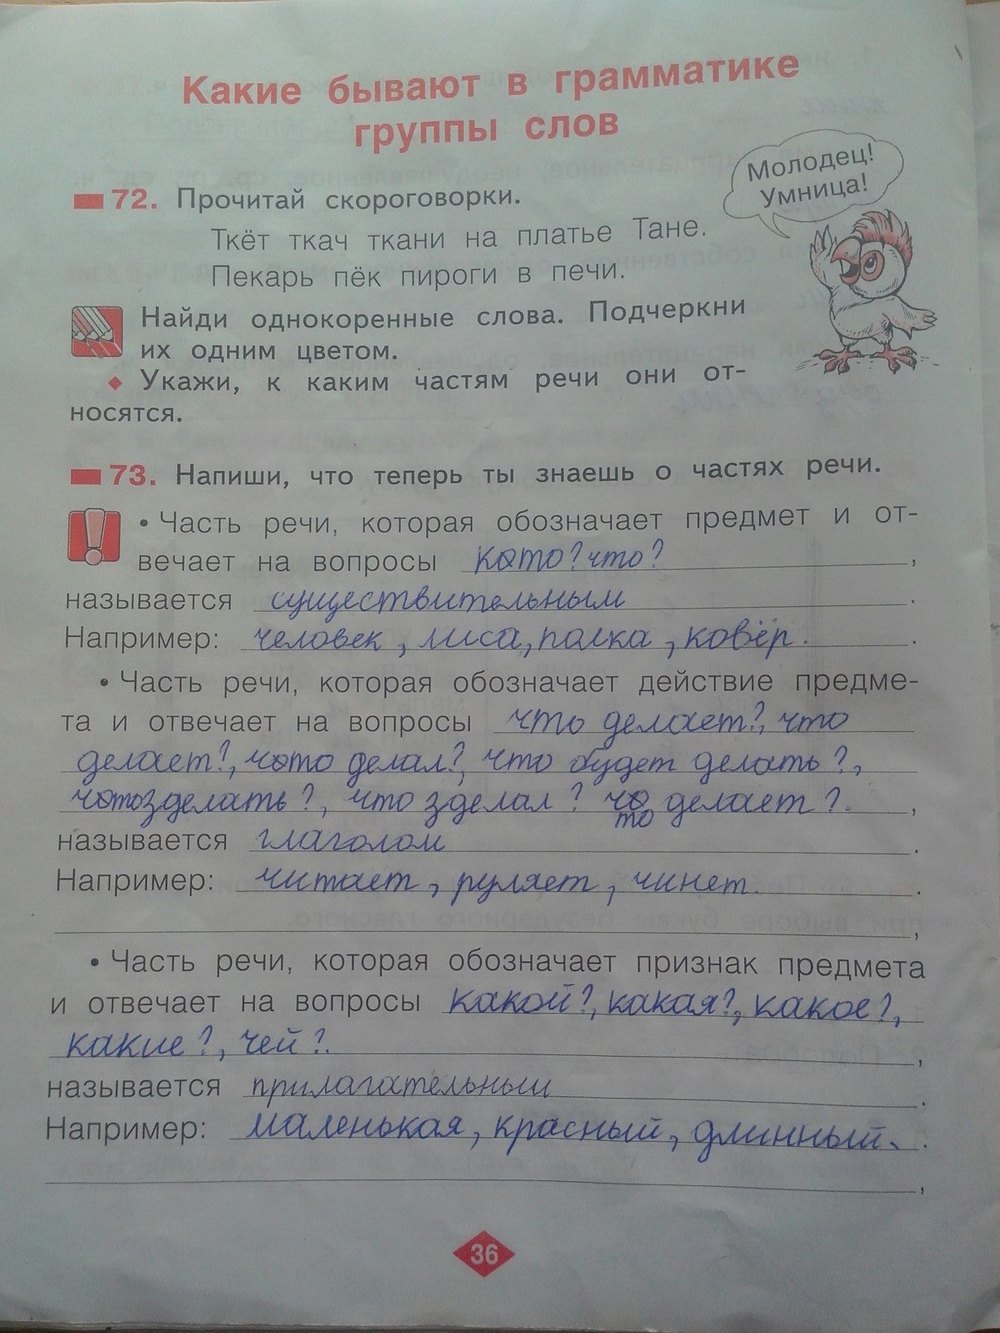 Какие бывают в грамматике
группы слов
Молодец!
Умница!
72. Прочитай скороговорки.
Ткёт ткач ткани на платье Тане.
Пекарь пёк пироги в печи.
Найди однокоренные слова. Подчеркни
их одним цветом.
Укажи, к каким частям речи они от-
носятся.
73. Напиши, что теперь ты знаешь о частях речи.
• Часть речи, которая обозначает предмет и от-
вечает на вопросы кто? что? ,
называется существительным .
Например: человек, лиса, полка, ковёр. .
• Часть речи, которая обозначает действие предме-
та и отвечает на вопросы что делает?, что
делает?, что делал?, что будет делать?,
что зделать?, что зделал? что делает?. ,
называется глаголом .
Например: читает, руляет, чинет. .
,
• Часть речи, которая обозначает признак предмета
и отвечает на вопросы какой?, какая?, какое?,
какие?, чей?. ,
называется прилагательным .
Например: маленькая, красный, длинный. .
,
36